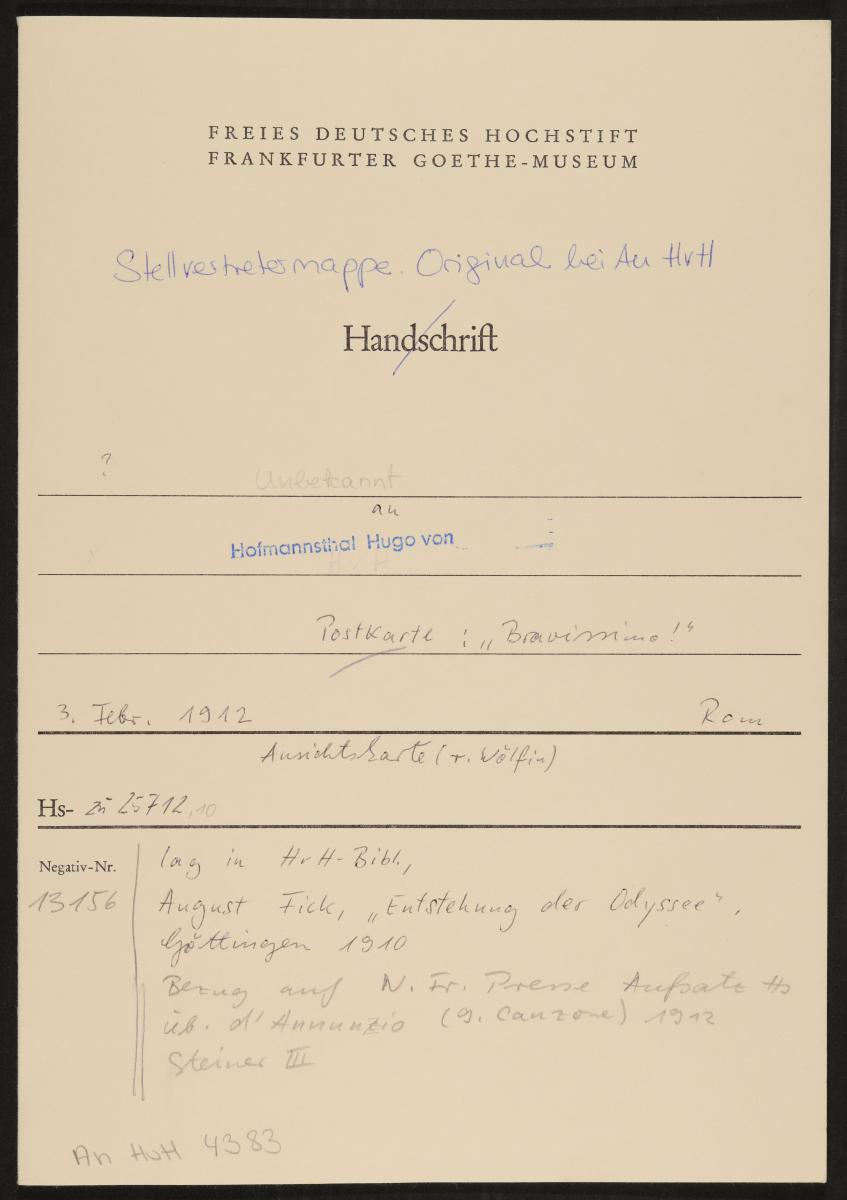 FREIES DEUTSCHES HOCHSTIFT
FRANKFURTER GOETHE-MUSEUM
Stellvertretermappe. Original bei An HvH
Handschrift
? Unbekannt
an
Hofmannsthal Hugo von
HvH
Postkarte : „Bravissimo!“
3. Febr. 1912 Rom
Ansichtskarte (r. Wölfin)
Hs- zu 25712,10
Negativ-Nr. lag in HvH-Bibl.,
13156 August Fick, „Entstehung der Odyssee“,
Göttingen 1910
Bezug auf N. Fr. Presse Aufsatz Hs
üb. d'Annunzio (9. Canzone) 1912
Steiner III
An HvH 4383